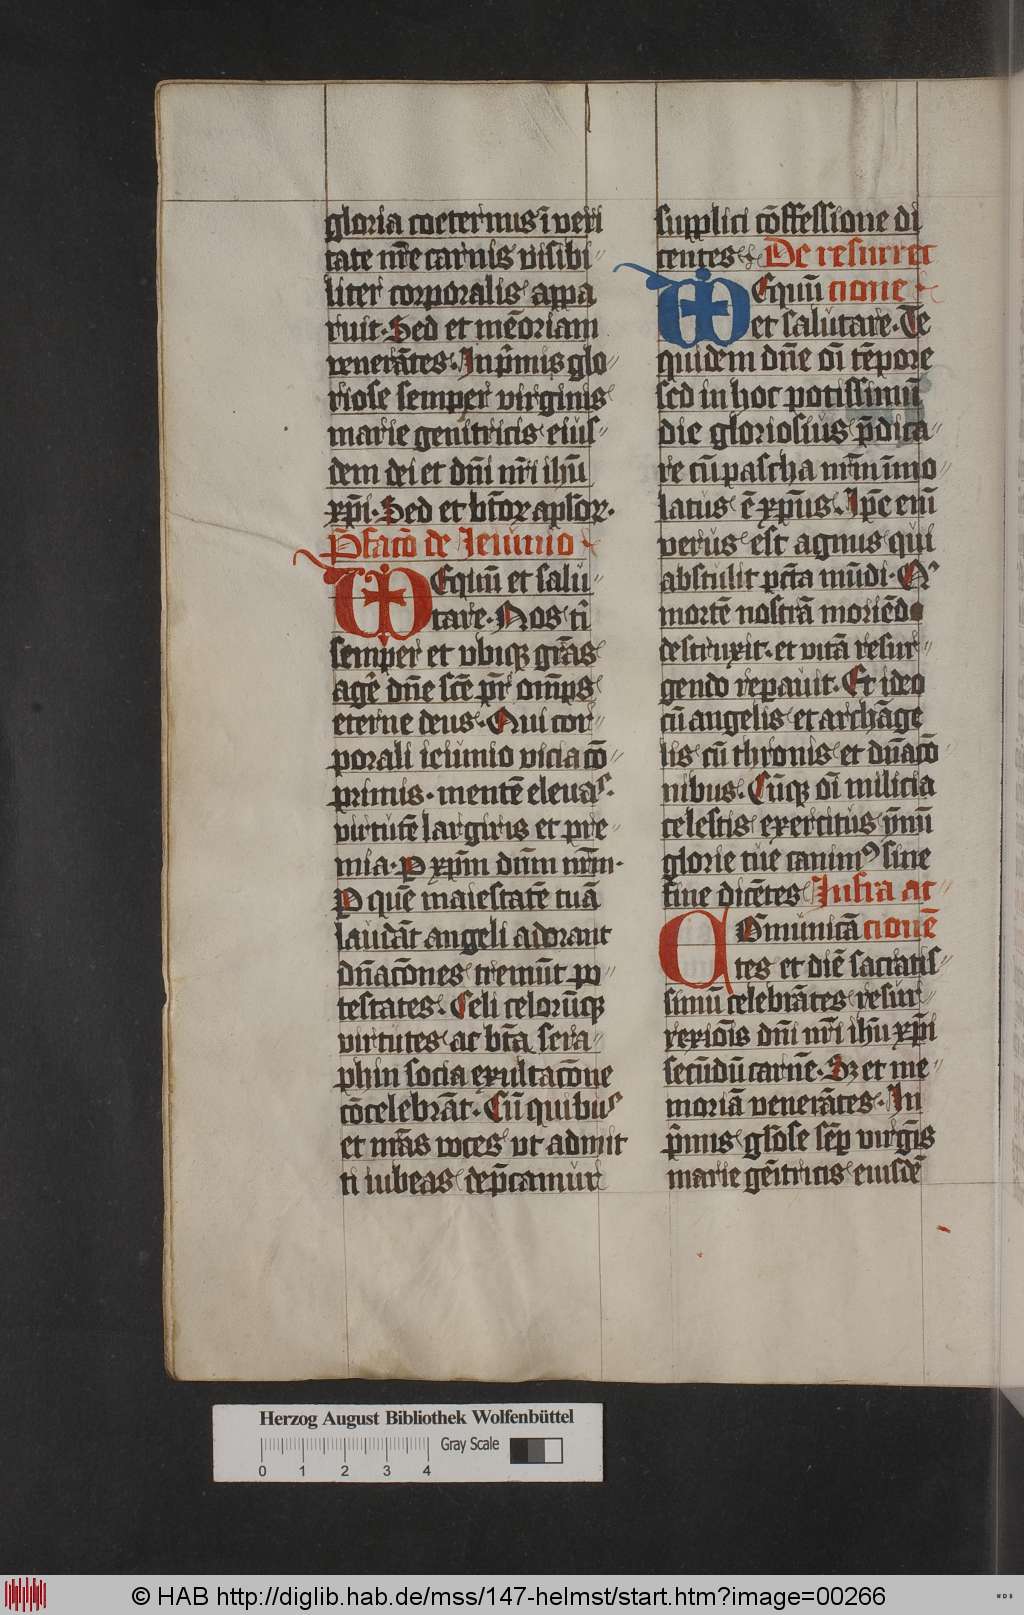 gloria coeternus ī veri
tate nr̄e carnis visibi
liter corporalis appa
ruit. Sed et mēoriam
venerātes. In p̄mis glo
riose semper virginis
marie genitricis eius
dem dei et dn̄i nr̄i ihū
xp̄i. Sed et bt̄oꝝ apl̄oꝝ.
P̄facō de Ieiunio
VD Equū et salu
tare. Nos tī
semper et vbiqꝫ grās
agē dn̄e sc̄e pr̄ om̄ps
eterne deus. Qui cor
porali ieiunio vicia cō
primis. mentē eleuas.
virtutē largiris et pre
mia. P xp̄m dūm nr̄m.
P quē maiestatē tuā
laudāt angeli adorant
dn̄acōnes tremūt po
testates. Celi celorūqꝫ
virtutes ac bt̄a sera
phin socia exultacōne
cōcelebrāt. Cū quibus
et nr̄as voces vt admit
ti iubeas dep̄camur
supplici cōffessione di
centes De resurrec
VD Equū cione
et salutare. Te
quidem dn̄e oī tēpore
sed in hoc potissimū
die gloriosius p̄dica
re cū pascha nr̄m īmo
latus ē xp̄us. Ip̄e enī
verus est agnus qui
abstulit pc̄ta mūdi. Qꝰ
mortē nostrā moriēdo
destruxit. et vitā resur
gendo repauit. Et ideo
cū angelis et archāge
lis cū thronis et dn̄acō
nibus. Cūqꝫ oī milicia
celestis exercitus ȳmū
glorie tue canimꝰ sine
fine dicētes Infra ac
COm̄unicā cionē
tes et diē sacratis
simū celebrātes resur
rexiōis dn̄i nr̄i ihū xp̄i
secūdū carnē. Sꝫ et me
moriā venerātes. In
p̄mis glōse sēp virgīs
marie gēitricis eiusdē
Herzog August Bibliothek Wolfenbüttel
Gray Scale
0 1 2 3 4
© HAB http://diglib.hab.de/mss/147-helmst/start.htm?image=00266